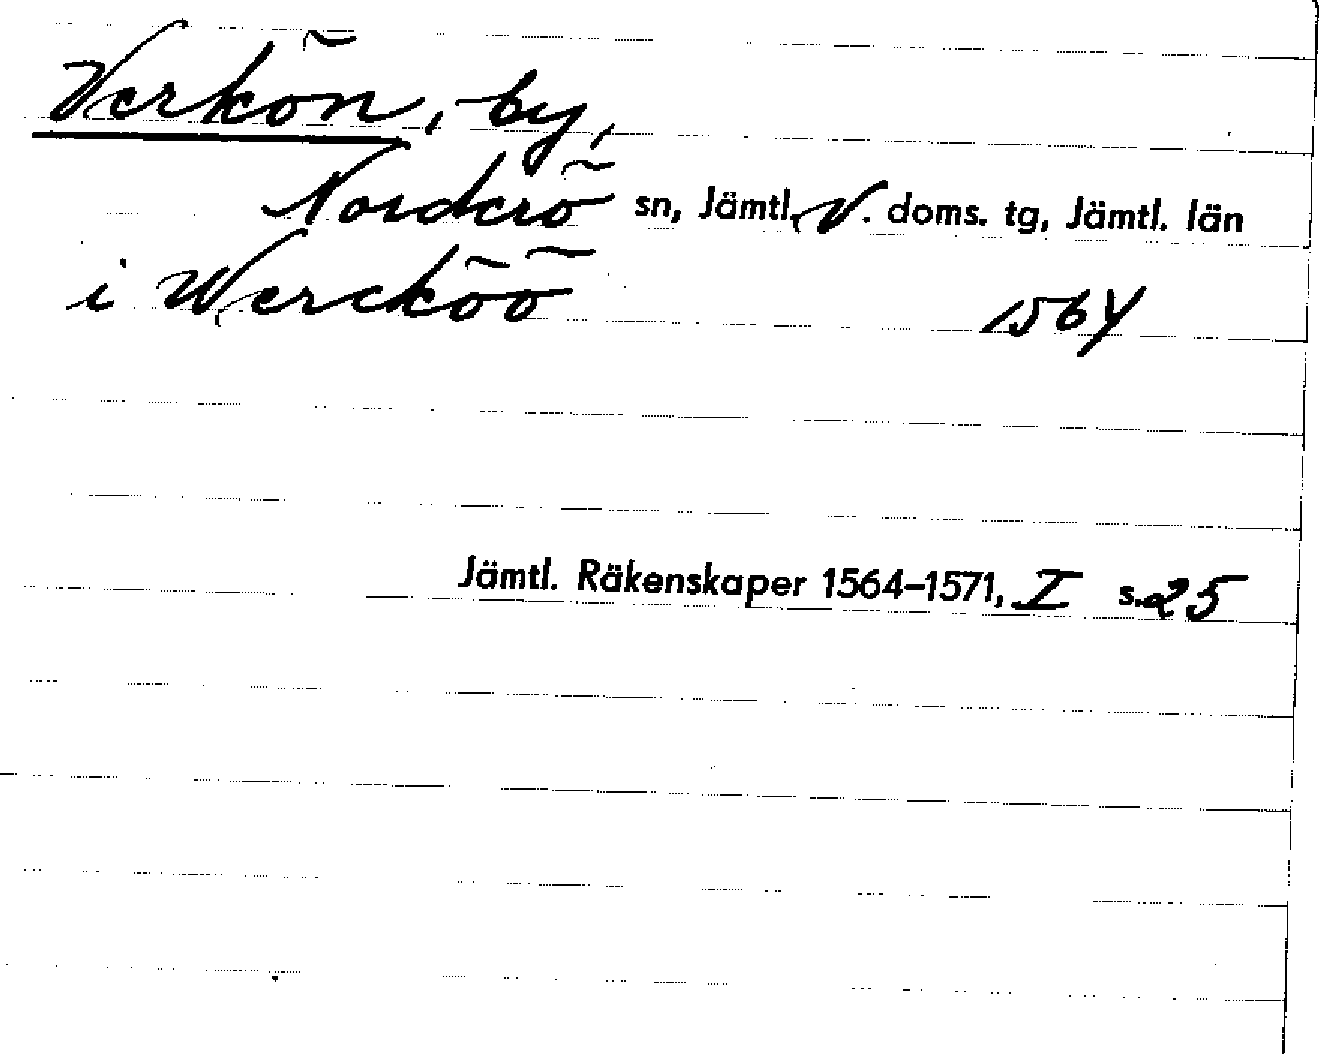 Verkön, by,
Norderö sn, Jämtl. V. doms. tg, Jämtl. län
i Wercköö 1564
Jämtl. Räkenskaper 1564–1571, I s. 25